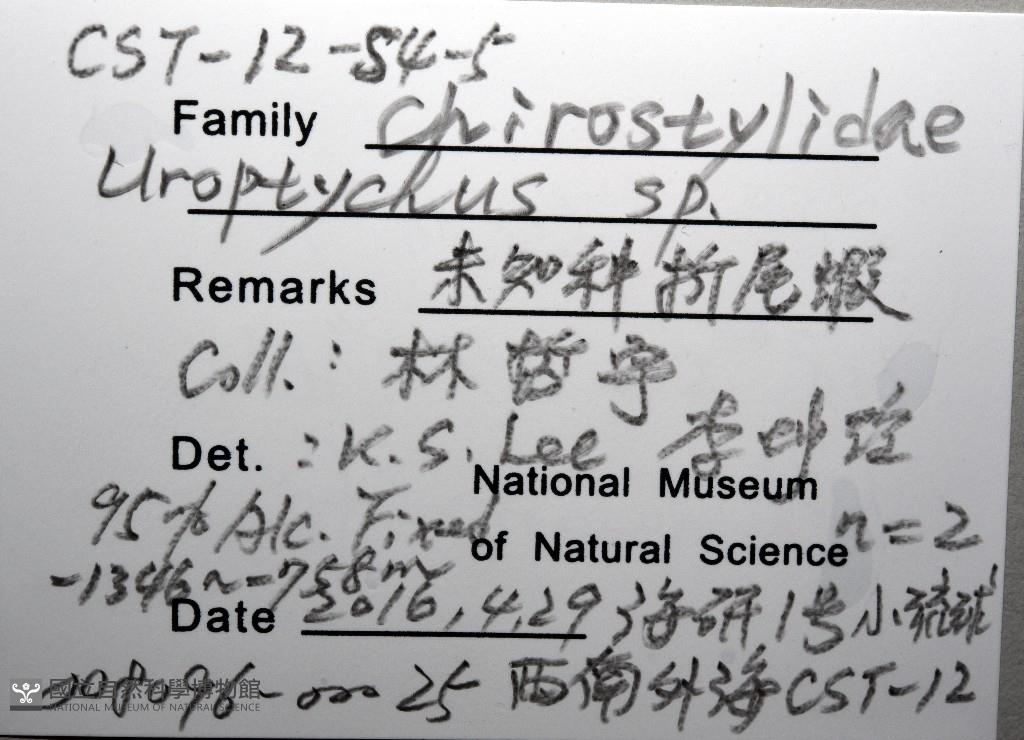 CST-12-S4-5
Family Chirostylidae
Uroptychus sp.
Remarks 未知科折尾蝦
Coll.: 林哲宇
Det. : K.S. Lee 李坤瑄
National Museum
95% Alc. Fixed of Natural Science n=2
-1346~-758m
Date 2016.4.29 海研1号小琉球
25 西南外海CST-12
國立自然科學博物館
NATIONAL MUSEUM OF NATURAL SCIENCE